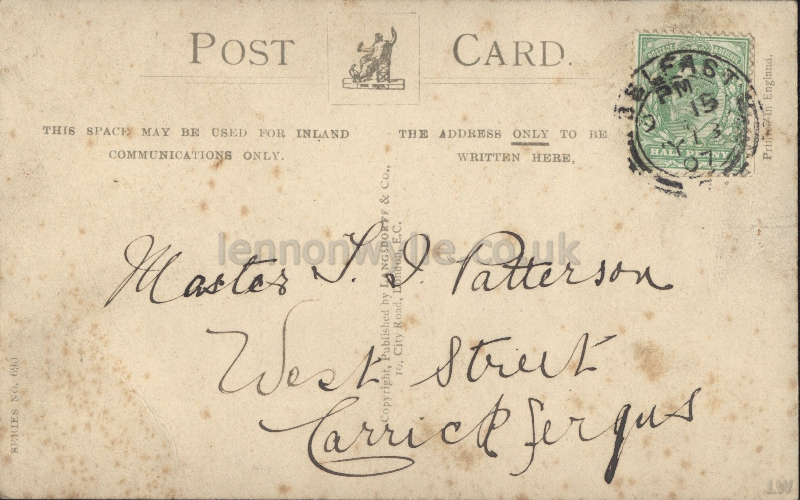 POST CARD.
THIS SPACE MAY BE USED FOR INLAND
COMMUNICATIONS ONLY.
THE ADDRESS ONLY TO BE
WRITTEN HERE.
HALF PENNY
BELFAST
PM
15
13
07
Printed in England.
lennonwylie.co.uk
Master T. J. Patterson
West Street
Carrickfergus
Copyright, Published by LANGSDORFF & Co.,
10, City Road, London, E.C.
SERIES NO. 690